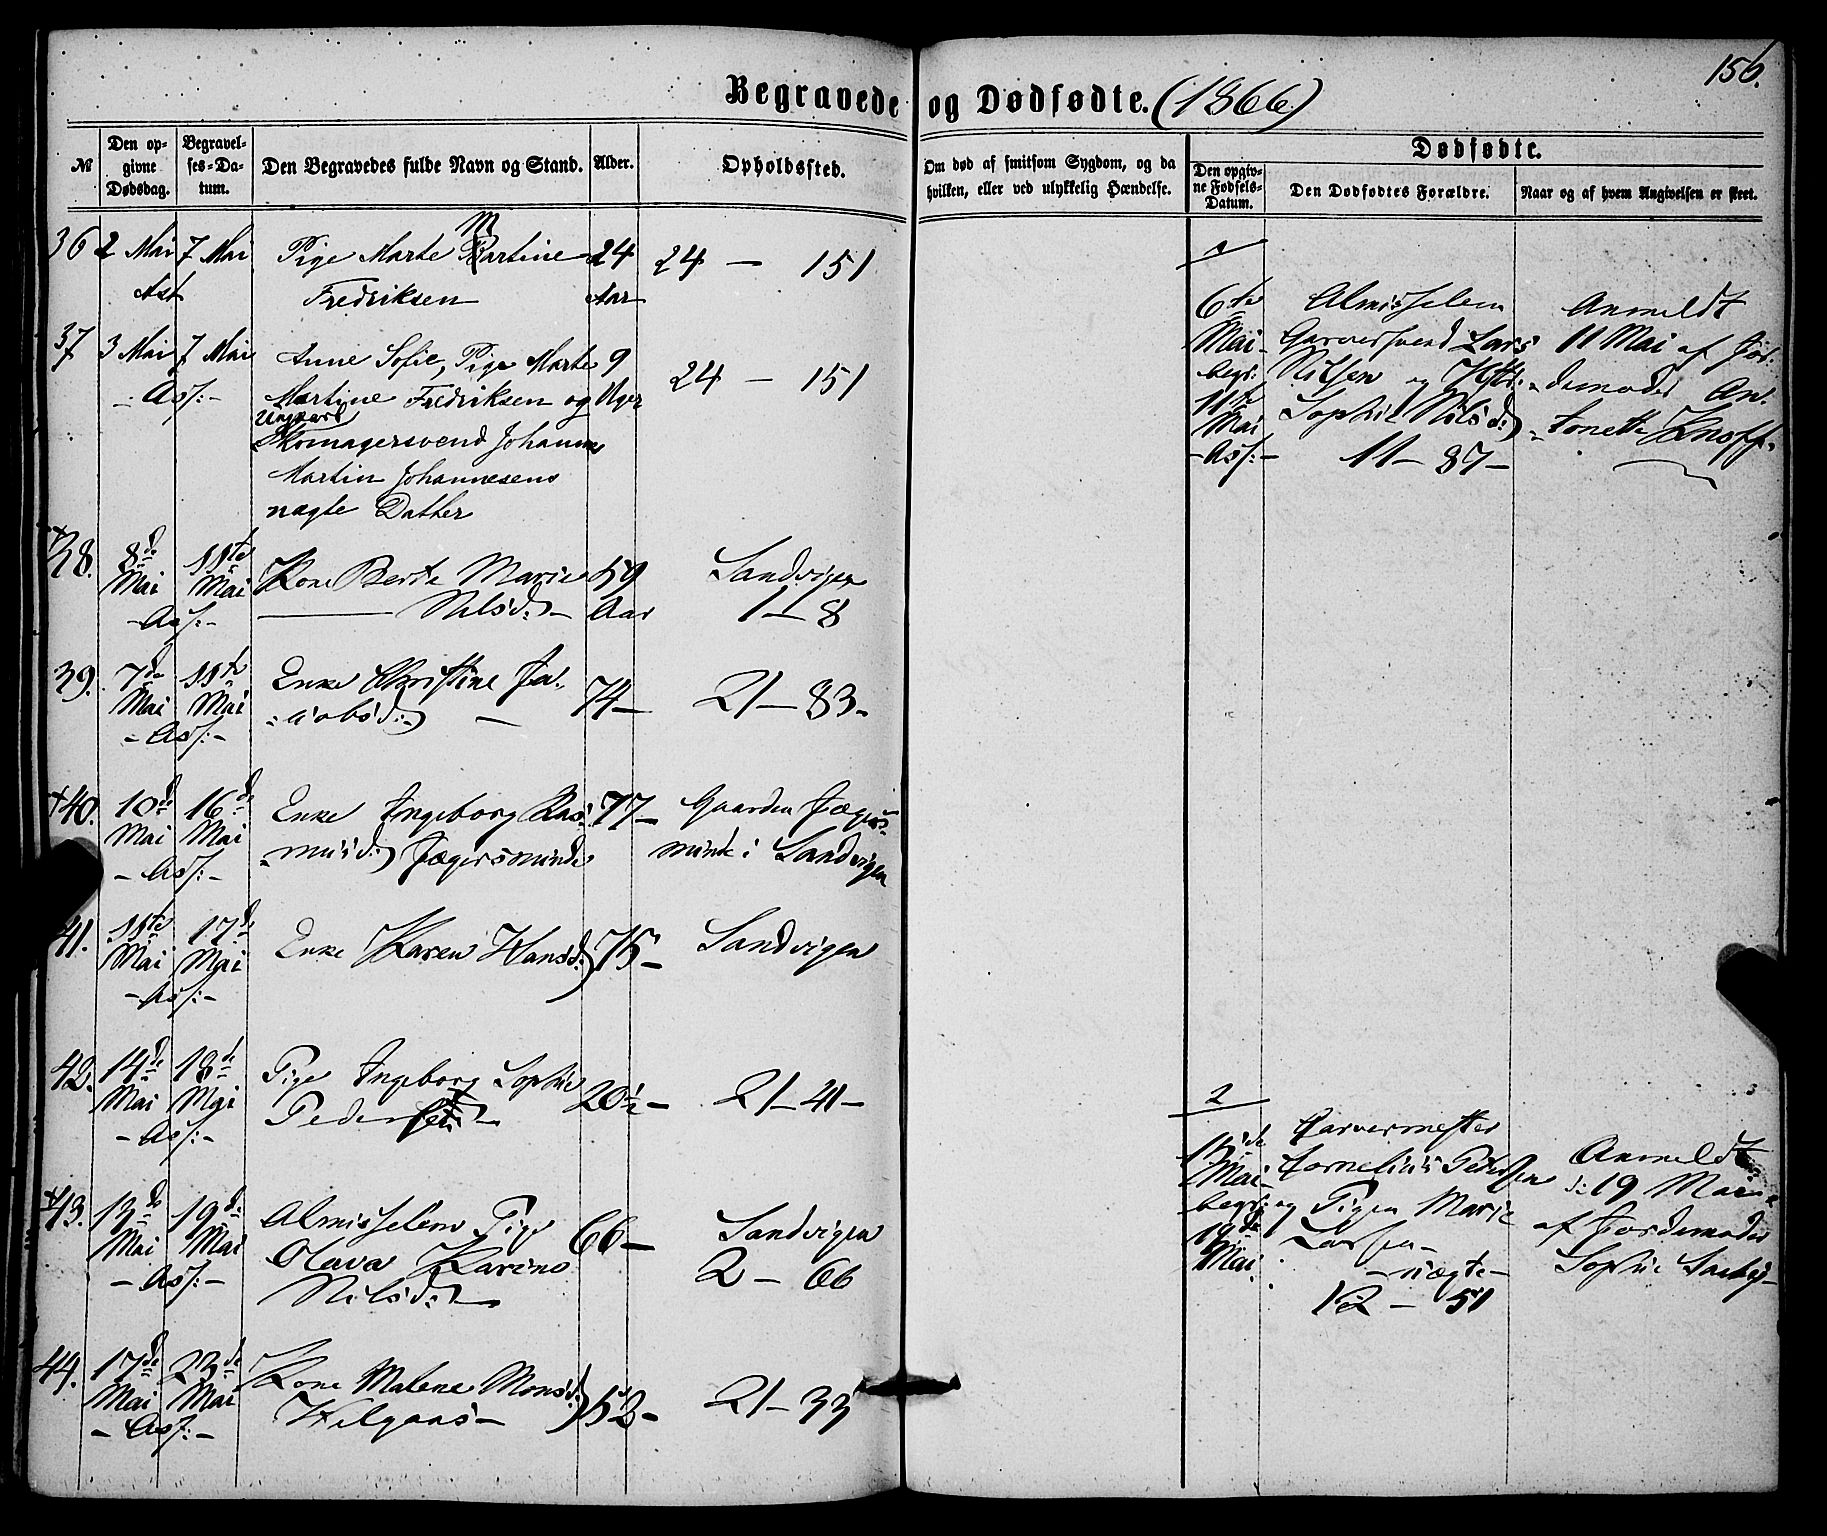 156.
Begravede og Dødfødte. (1866)
№
Den opgivne Dødsdag.
Begravelses-Datum.
Den Begravedes fulde Navn og Stand.
Alder.
Opholdssted.
Om død af smitsom Sygdom, og da hvilken, eller ved ulykkelig Hændelse.
Dødfødte.
Den opgivne Fødsels-Datum.
Den Dødfødtes Forældre.
Naar og af hvem Angivelsen er skeet.
36 2 Mai 7 Mai Pige Marte Martine 24 24 — 151
Ast Fredriksen Aar
37 3 Mai 7 Mai Anne Sofie, Pige Marte 9 24 — 151
- Ass:- Martine Fredriksen og Uger
Ungkarl
Skomagersvend Johannes
Martin Johannesens
uægte Datter
+38. 8de Mai 11te Mai Kone Berte Marie 59 Sandvigen
- Ass:- Nilsd:) - Aar 1 — 8
39. 7de Mai 11te Mai Enke Christine Ja-
- Ass:- -cobsd:) — 74 — 21 — 83 -
+40. 10de Mai 16de Mai Enke Ingeborg Ras- 77 - Gaarden Jægers-
- Ass:- -musd:) Jægersminde minde i Sandvigen
41. 11te Mai 17de Mai Enke Karen Hansd:) 75 - Sandvigen
- Ass:-
42. 14de Mai 18de Mai Pige Ingeborg Sophie
- Ass:- Peder 20½ - 21 - 41 -
+43. 13de Mai 19de Mai Almisselem Pige 66 - Sandvigen
- Ass:- Olava Karine 2 - 66
Nilsd:)
44. 17de Mai 23de Mai Kone Malene Monsd:) 52 - 21 - 33
- Ass:-
1
6te Almisselem Anmeldt
Mai Garversvend Lars 11 Mai af Jor-
begr: Nilsen og Hstr: -demoder An-
11te Sophie Nilsd:) -tonette Knoff
Mai
- Ass:- 11 - 87 -
2
15de Garvermester Anmeldt
Mai Cornelius Petersen d: 19 Mai
begr: og Pigen Marie af Jordemoder
19de Larsen Sophie
Mai - uægte -
12 - 51